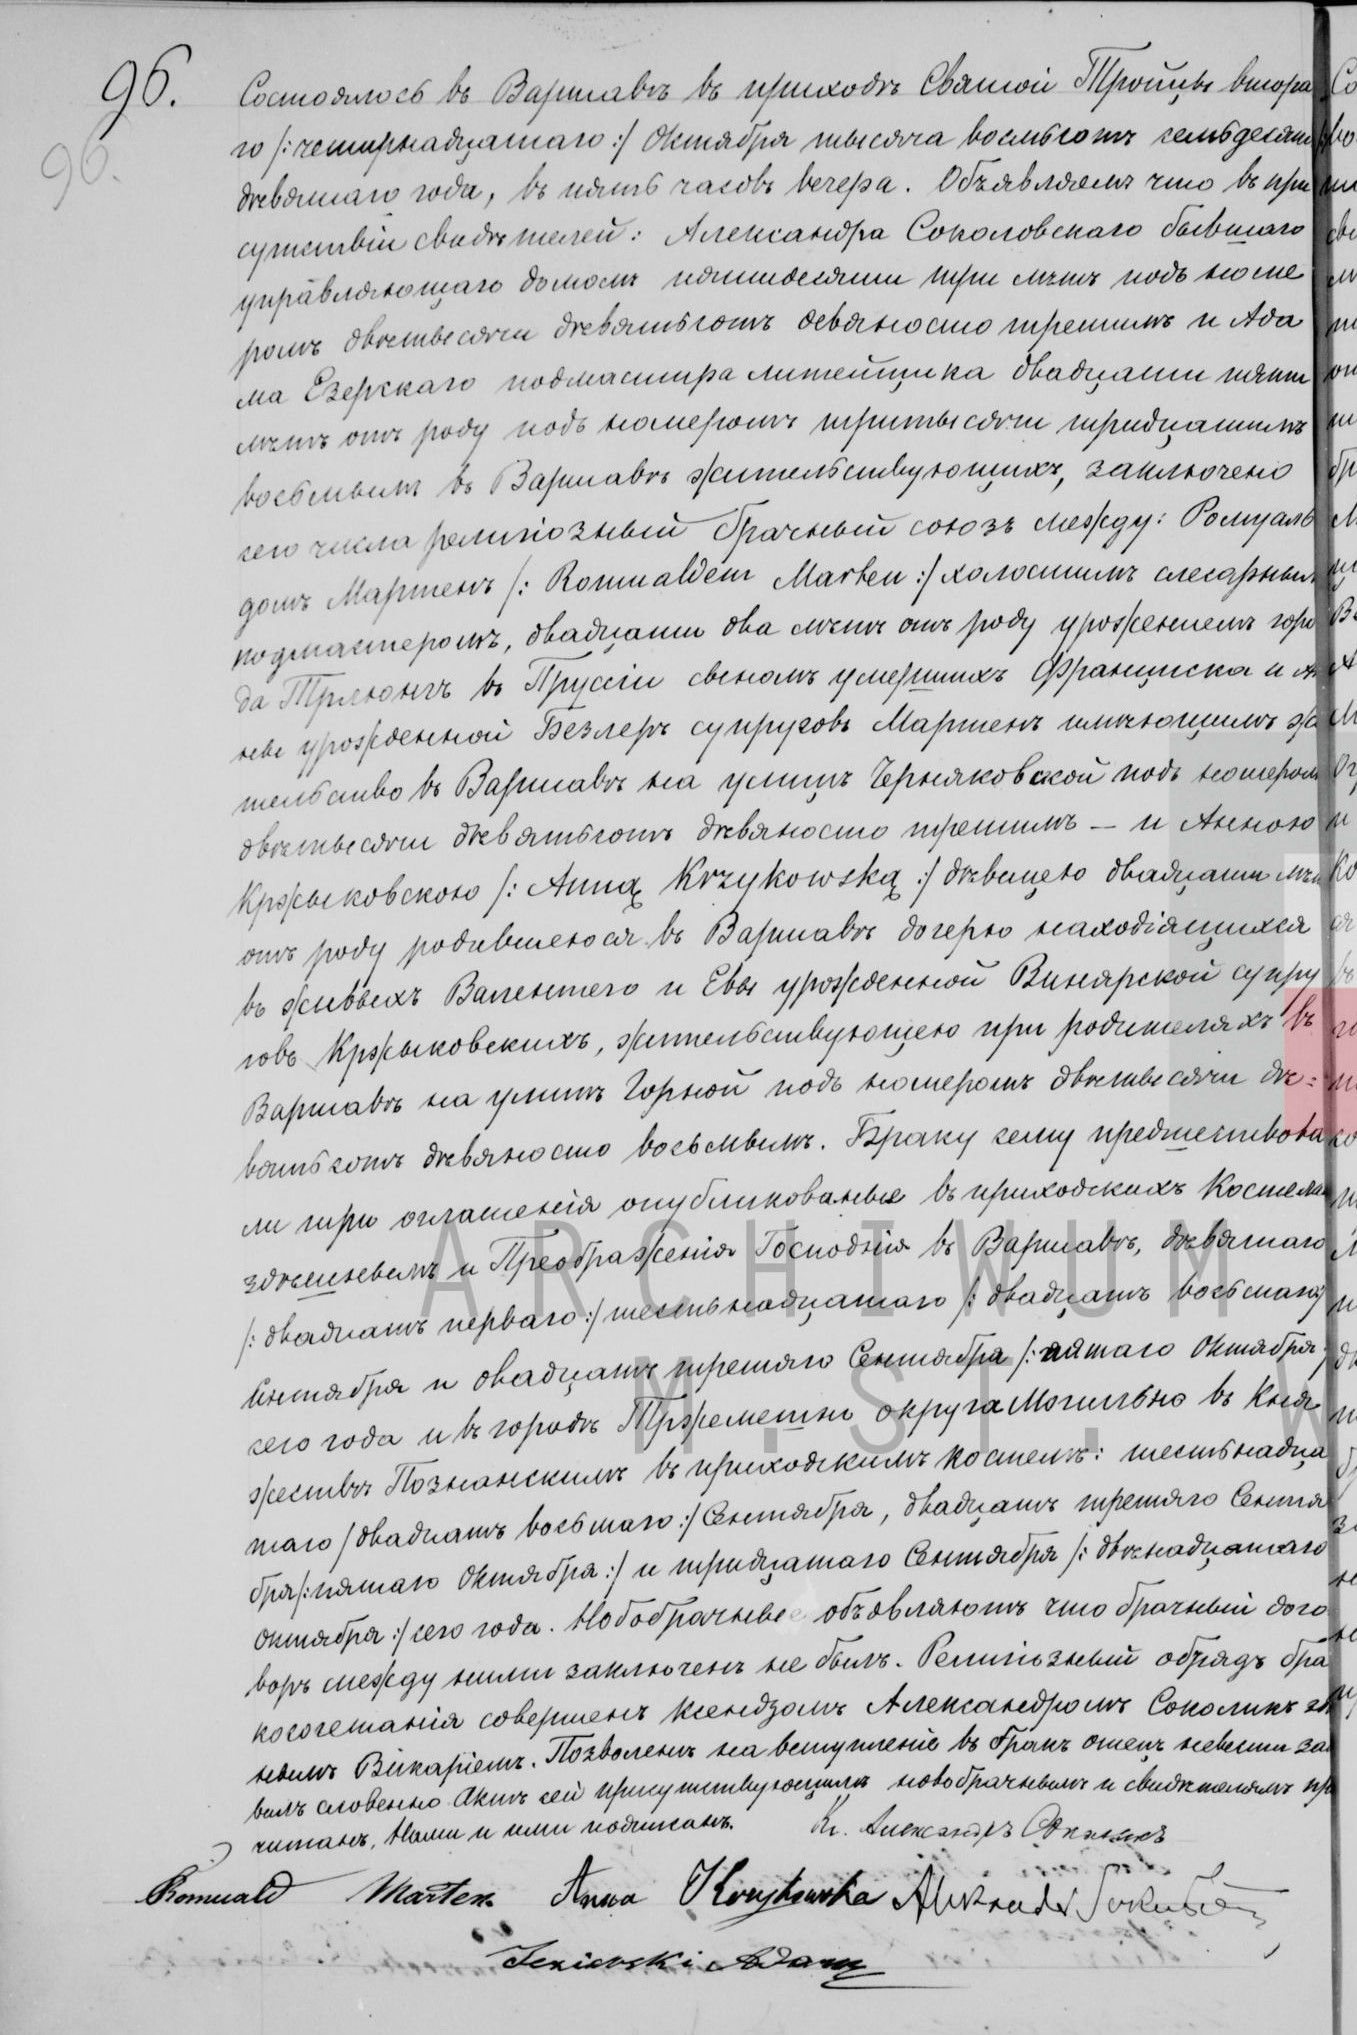 96.
96.
Состоялось въ Варшавѣ въ приходѣ Святой Тройцы втора
го /: четырнадцатаго :/ Октября тысяча восемьсотъ семьдесятъ
девятаго года, въ пять часовъ вечера. Объявляемъ что въ при
сутствіи свидѣтелей: Александра Соколовскаго бывшаго
управляющаго домомъ пятидесяти три лѣтъ подъ номе
ромъ двѣтысячи девятьсотъ девяносто третимъ и Ада
ма Езерскаго подмастра литейщика двадцати пяти
лѣтъ отъ роду подъ номеромъ тритысячи тридцатымъ
восьмымъ въ Варшавѣ жительствующихъ, заключено
сего числа религіозный брачный союзъ между: Ромуаль
домъ Мартенъ /: Romualdem Marten :/ холостымъ слесарным
подмастеромъ, двадцати два лѣтъ отъ роду уроженцемъ горо
да въ Пруссіи сыномъ умершихъ Франциска и Ан
ны урожденной Безлеръ супруговъ Мартенъ имѣющимъ жи
тельство въ Варшавѣ на улицѣ Черняковской подъ номером
двѣтысячи девятьсотъ девяносто третимъ — и Анною
Кржыковскою /: Anną Krzykowską :/ дѣвицею двадцати лѣт
отъ роду родившеюся въ Варшавѣ дочерью находіящихся
въ живыхъ Валентего и Евы урожденной Винярской супру
говъ Кржыковскихъ, жительствующею при родителяхъ въ
Варшавѣ на улицѣ Горной подъ номеромъ двѣтысячи де=
вятьсотъ девяносто восьмымъ. Браку сему предшествова
ли три оглашенія опубликованные въ приходскихъ Костелах
здѣшнемъ и Преображенія Господнія въ Варшавѣ, девятаго
/: двадцать перваго :/ шестьнадцатаго /: двадцать восьмаго :/
Сентября и двадцать третяго Сентября /: пятаго Октября :/
сего года и въ городѣ Тржемешно округа Могильно въ Кня
жествѣ Познанскимъ въ приходскимъ костелѣ: шестьнадца
таго / двадцать восьмаго :/ Сентября, двадцать третяго Сентя
бря /: пятаго Октября :/ и тридцатаго Сентября /: двѣнадцатаго
Октября :/ сего года. Новобрачные объявляютъ что брачный дого
воръ между ними заключенъ не былъ. Религіозный обрядъ бра
косочетанія совершенъ ксендзомъ Александромъ Соколикъ
Викаріемъ. Позволенъ на вступленіе въ бракъ отецъ невесты зая
вилъ словенно Актъ сей присутствующимъ новобрачнымъ и свидѣтелямъ про
читанъ, Нами и ими подписанъ. Кс. Александръ Соколикъ
Romuald Marten Anna Krzykowska Aleksander Sokołowski
Jezierski Adam
ARCHIWUM
M. ST. W